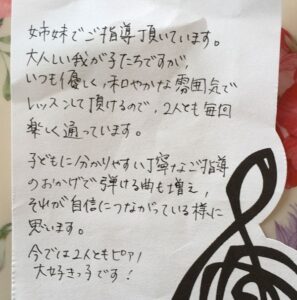 姉妹でご指導頂いています。
大人しい我が子たちですが、
いつも優しく、和やかな雰囲気で
レッスンして頂けるので、2人とも毎回
楽しく通っています。
子どもに分かりやすい丁寧なご指導
のおかげで弾ける曲も増え、
それが自信につながっている様に
思います。
今では2人ともピアノ
大好きっ子です！